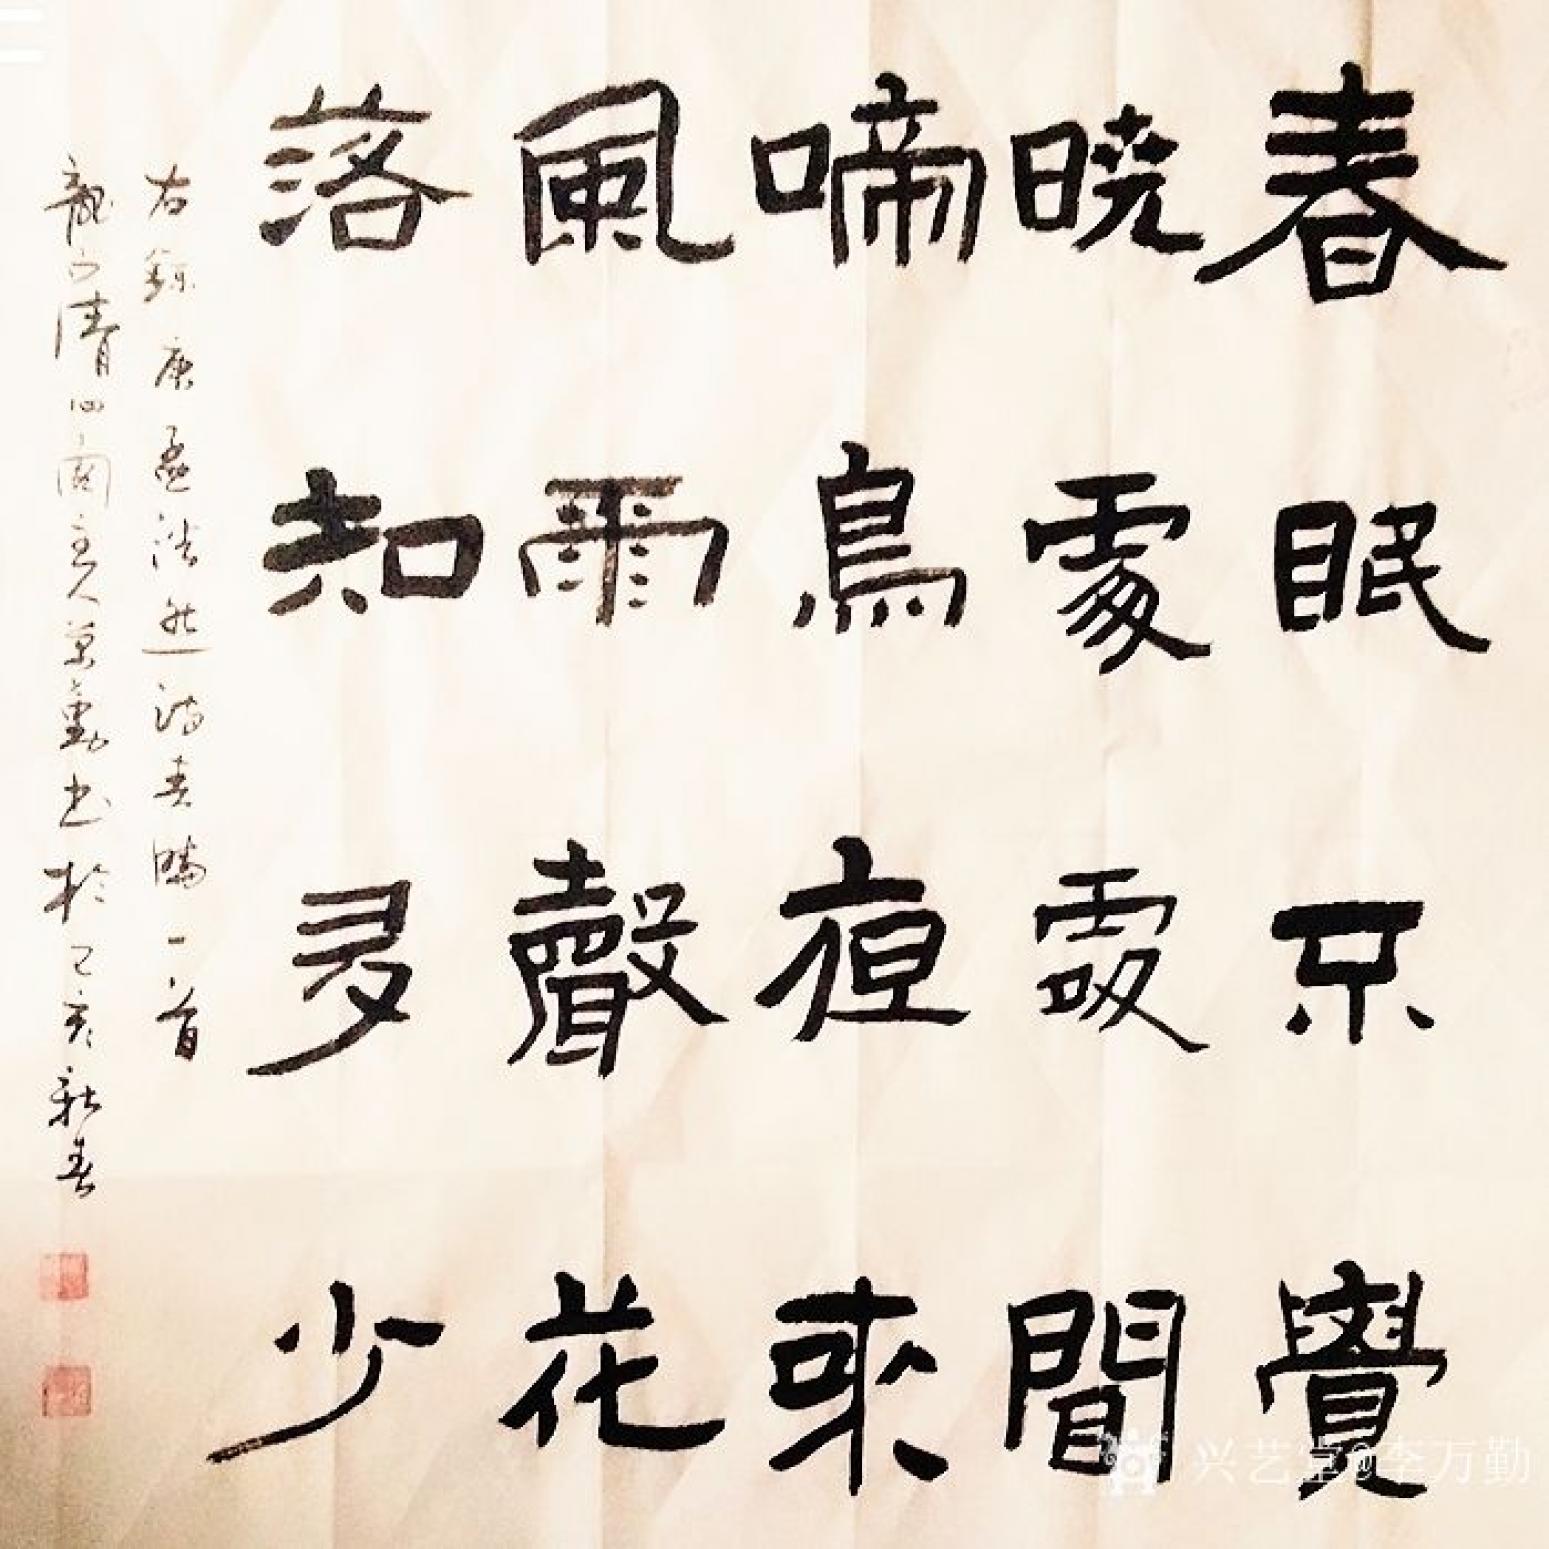 春眠不覺
曉處處聞
啼鳥夜來
風雨聲花
落知多少
右錄唐孟浩然詩春曉一首
龍山清四閣主人萬勤書於己亥新春
兴艺堂@李万勤